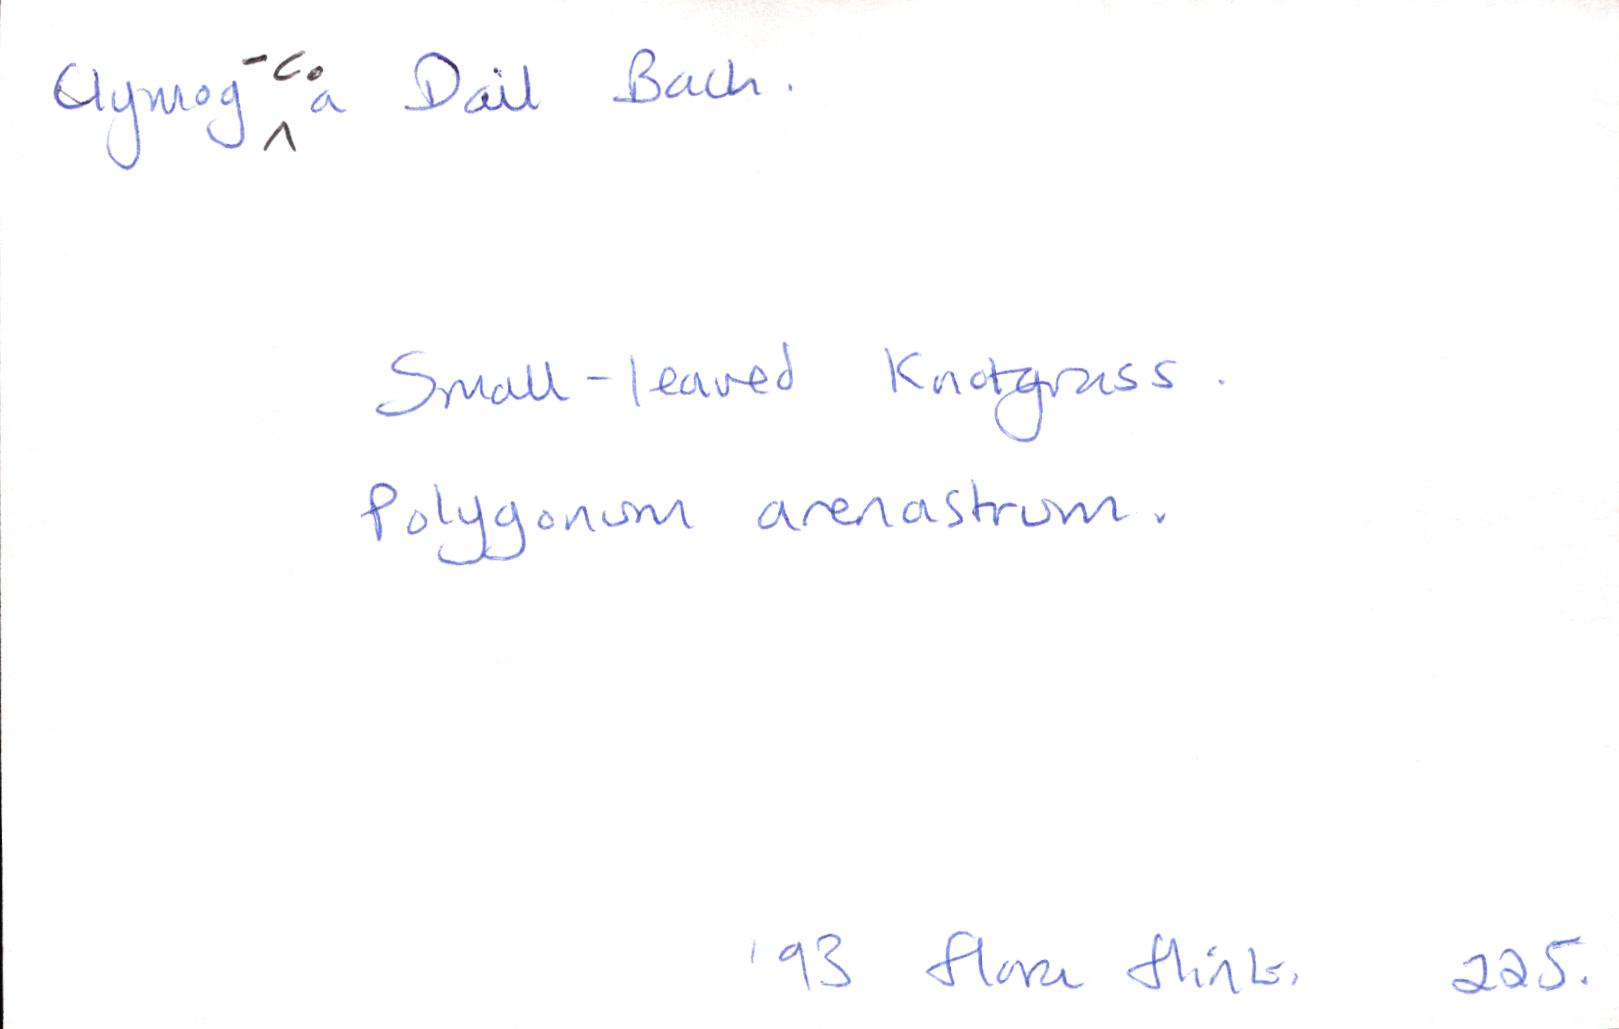 Clymog -c. a Dail Bach.
Small-leaved Knotgrass.
Polygonum arenastrum.
'93 Flora Flints. 225.